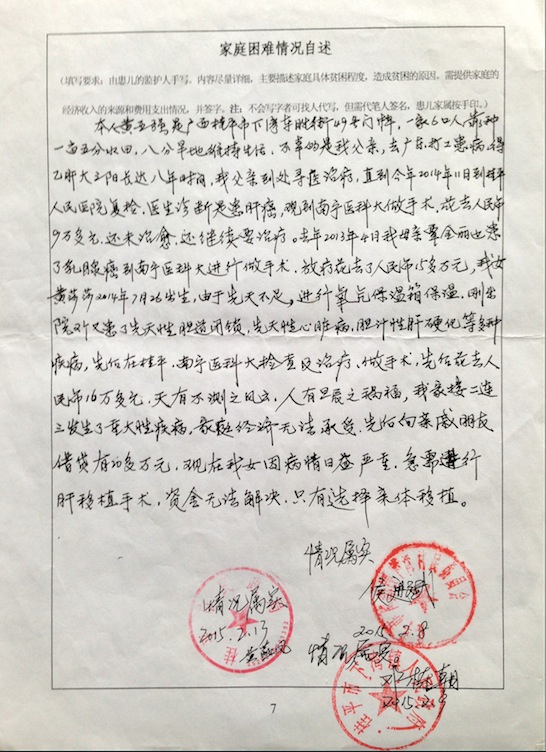 家庭困难情况自述
(填写要求:由患儿的监护人手写,内容尽量详细,主要描述家庭具体贫困程度,造成贫困的原因,需提供家庭的
经济收入的来源和费用支出情况,并签字。注:不会写字者可找人代写,但需代笔人签名,患儿家属按手印。)
本人黄 强是广西桂平市下湾 街49号门牌,一家6口人,靠种
一亩五分水田,八分旱地维持生活,不幸的是我父亲,去广东打工患病,得
乙肝大三阳长达八年时间,我父亲到处寻医治疗,直到今年2014年11月到桂平
人民医院复检,医生诊断是患肝癌,现到南宁医科大做手术,花去人民币
9万多元,还未治愈,还继续要治疗。去年2013年4月我母亲 金丽也患
了乳腺癌到南宁医科大进行做手术,放疗花去了人民币15多万元,我女
黄莎莎2014年7月26出生,由于先天不足,进行氧气保温箱保温,刚出
院又患了先天性胆道闭锁,先天性心脏病,胆汁性肝硬化等多种
疾病,先后在桂平,南宁医科大检查及治疗、做手术,先后花去人
民币16万多元,天有不测之风云,人有旦夕之祸福,我家接二连
三发生了重大性疾病,家庭经济无法承受,先后向亲戚朋友
借贷有 多万元,现在我女因病情日益严重,急需进行
肝移植手术,资金无法解决,只有选择亲体移植。
情况属实
情况属实
2015.2.13
2015.2.8
情况属实
2015.2.9
7